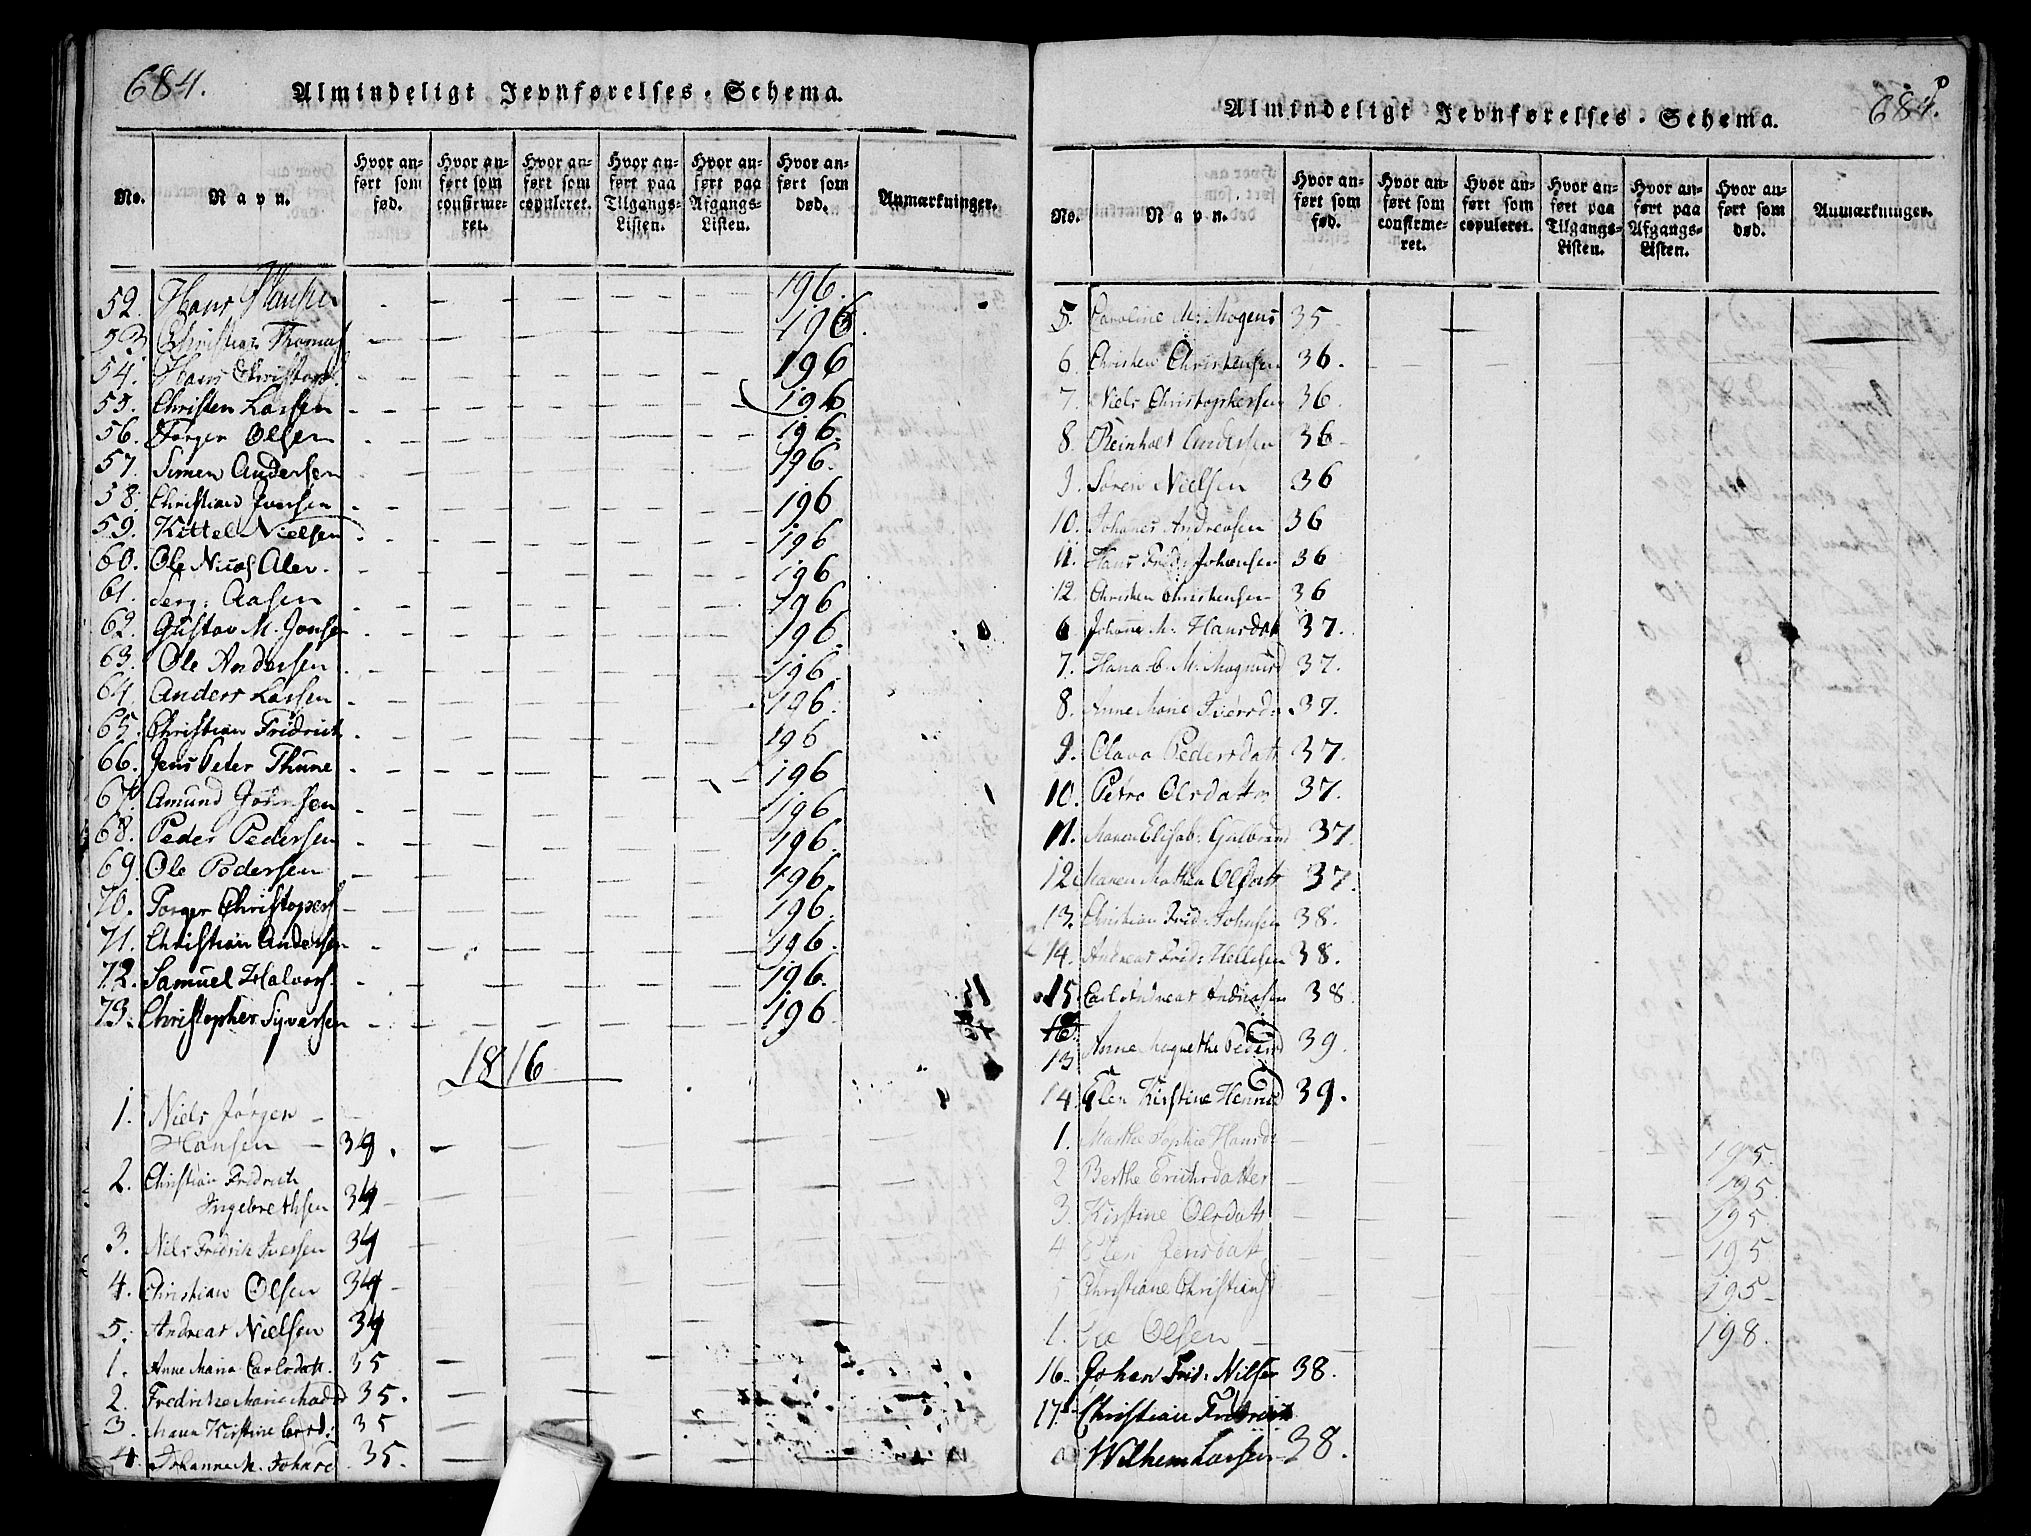 684.
Almindeligt Jevnførelses-Schema.
No.
Navn.
Hvor anført som fød.
Hvor anført som confirmeret.
Hvor anført som copuleret.
Hvor anført paa Tilgangs-Listen.
Hvor anført paa Afgangs-Listen.
Hvor anført som død.
Anmærkninger.
52. Hans 196.
53 Christian Thomas 196.
54. Hans Christoph 196
55. Christen Larsen 196
56. Torger Olsen 196.
57. Simen Andersen 196.
58. Christian Iversen 196
59. Kittel Nielsen 196
60. Ole Nicol Alev. 196
61. Serg: Aasen 196
62. Gustav M. Jonsen 196.
63. Ole Andersen 196.
64 Anders Larsen 196.
65. Christian Fridrich 196
66. Jens Peter Thune 196
67. Amund Johnsen 196
68. Peder Pedersen 196.
69. Ole Pedersen 196
70. Torger Christophers 196.
71. Christian Andersen 196.
72. Samuel Halvors. 196.
73. Christopher Syversen 196
1816
1. Niels Jørgen
Hansen 34.
2. Christian Fridrich
Ingebrethsen 34
3. Niels Fridrik Iversen 34
4. Christian Olsen 34
5. Andreas Nielsen 34
1. Anne Maria Carlsdatt. 35
2. Fredrikke Marie Madsd 35.
3. Maren Kirstine 35
4. Johanne M. Johansd 35.
684.
Almindeligt Jevnførelses-Schema.
No.
Navn.
Hvor anført som fød.
Hvor anført som confirmeret.
Hvor anført som copuleret.
Hvor anført paa Tilgangs-Listen.
Hvor anført paa Afgangs-Listen.
Hvor anført som død.
Anmærkninger.
5. Caroline M. Mogens 35
6. Christen Christensen 36.
7. Niels Christophersen 36
8. Reinholt Andersen 36
9. Søren Nielsen 36
10. Johanes Andreasen 36
11. Hans Frid: Johansen 36
12. Christen Christensen 36
6 Johane M. Hansdat 37.
7. Hana C. M. Magnusd 37.
8. Anne Marie Iversd. 37.
9. Olava Pedersdatt 37.
10. Petro Olsdatter 37.
11. Maren Elisab: Gulbrand 37.
12 Maren Mathea Olsdatt 37.
13. Christian Frid: Johnsen 38.
14. Andreas Frid: Hellesen 38.
15. Carl Andreas Andreasen 38
16.
13 Anne Magrethe Pedersd 39.
14. Elen Kirstine Henriksd 39.
1. Marthe Sophie Hansd 195.
2 Berthe Erichsdatter 195
3. Kirstine Olsdatt 195
4 Elen Jensdatt 195
5 Christiane Christiansd 195
1. Olsen 198.
16. Johan Frid: Nilsen 38.
17 Christian Fridrich
Wilhem Larsen 38.